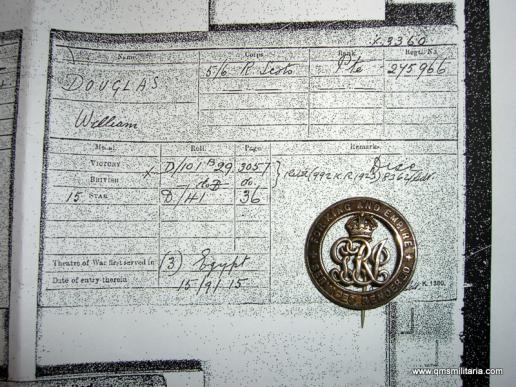 X.3360
Name. Corps. Rank. Regtl. No.
DOUGLAS 5/6 R. Scots Pte 275966
William
Medal. Roll. Page Remarks.
VICTORY X D/101 B29 3057 Disc
BRITISH do do. (992 K.R. 1923)
15 STAR D/4 36
Theatre of War first served in (3) Egypt
Date of entry therein 15/9/15
K. 1380.
FOR KING AND EMPIRE
SERVICES RENDERED
www.qmsmilitaria.com